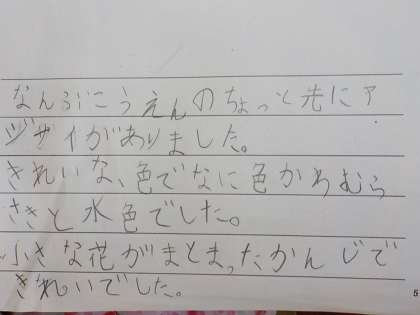 なんぶこうえんのちょっと先にア
ジサイがありました。
きれいな、色でなに色かわむら
さきと水色でした。
小さな花がまとまったかんじで
きれいでした。